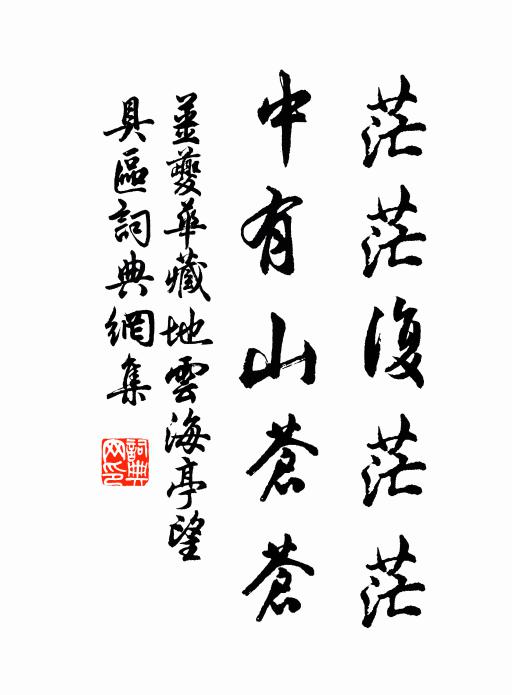 茫茫復茫茫
中有山蒼蒼
姜夔華藏地雲海亭望
具區詞典網集
詞典網印